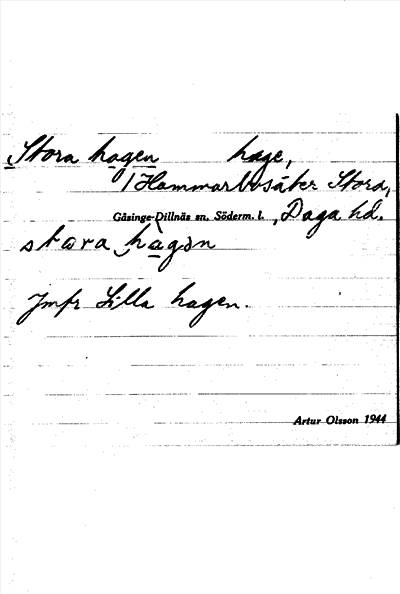 Stora hagen hage,
/ Hammarbosäter Stora,
Gåsinge-Dillnäs sn. Söderm. l., Daga hd.
stora hagən
Jmfr Lilla hagen.
Artur Olsson 1944